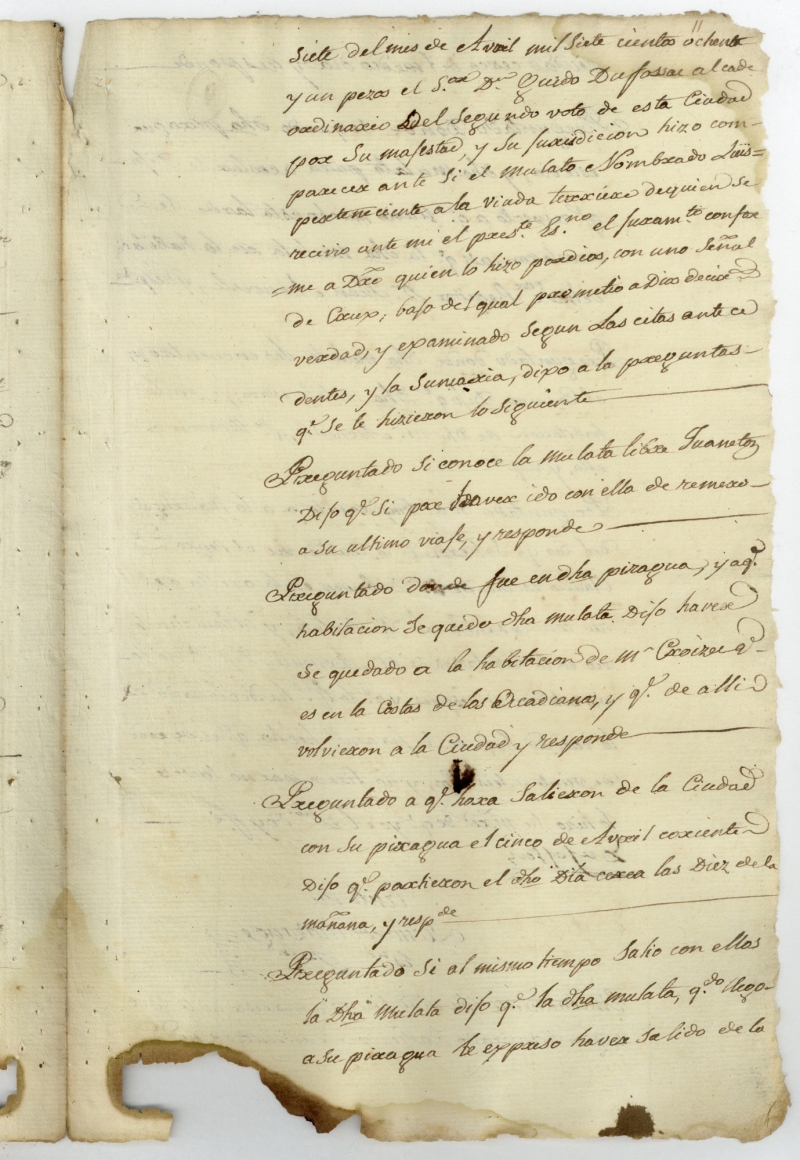 siete del mes de Avril mil siete cientos ochenta
y un pezos el S.or Dn Guido Dufossac alcade
ordinario del segundo voto de esta Ciudad
por su majestad, y su jurisdicion hizo com-
parecer ante si el mulato Nombrado Luis=
perteneciente a la viuda de quien se
recivio ante mi el press.te Es.no el juram.to confor
=me a Dro quien lo hizo por dios, con uno señal
de Crux, bajo del qual prometio a Dios decir
verdad, y examinado segun las citas ante ce
dentes, y la sumaria, dixo a la preguntas-
q.e se le hizieron lo siguiente
Preguntado si conoce la mulata libre Juaneton
Dijo q.e si por haver ido con ella de remero-
a su ultimo viaje, y responde
Preguntado donde fue en dha piragua, y aq.e
habitacion se quedo dha mulata. Dijo haver
se quedado a la habitacion de Mr q.e-
es en la Costas de los Arcadianos, y q.e de alli
volvieron a la Ciudad y responde
Preguntado a q.e hara salieron de la Ciudad
con su piragua el cinco de Avril coriente
Dijo q.e partieron el dho Dia cerca las Diez de la
mañana, y resp.de
Preguntado si al mismo tiempo salio con ellos
la Dha Mulata dijo q.e la dha mulata, q.do llego-
a su piragua le expreso haver salido de la